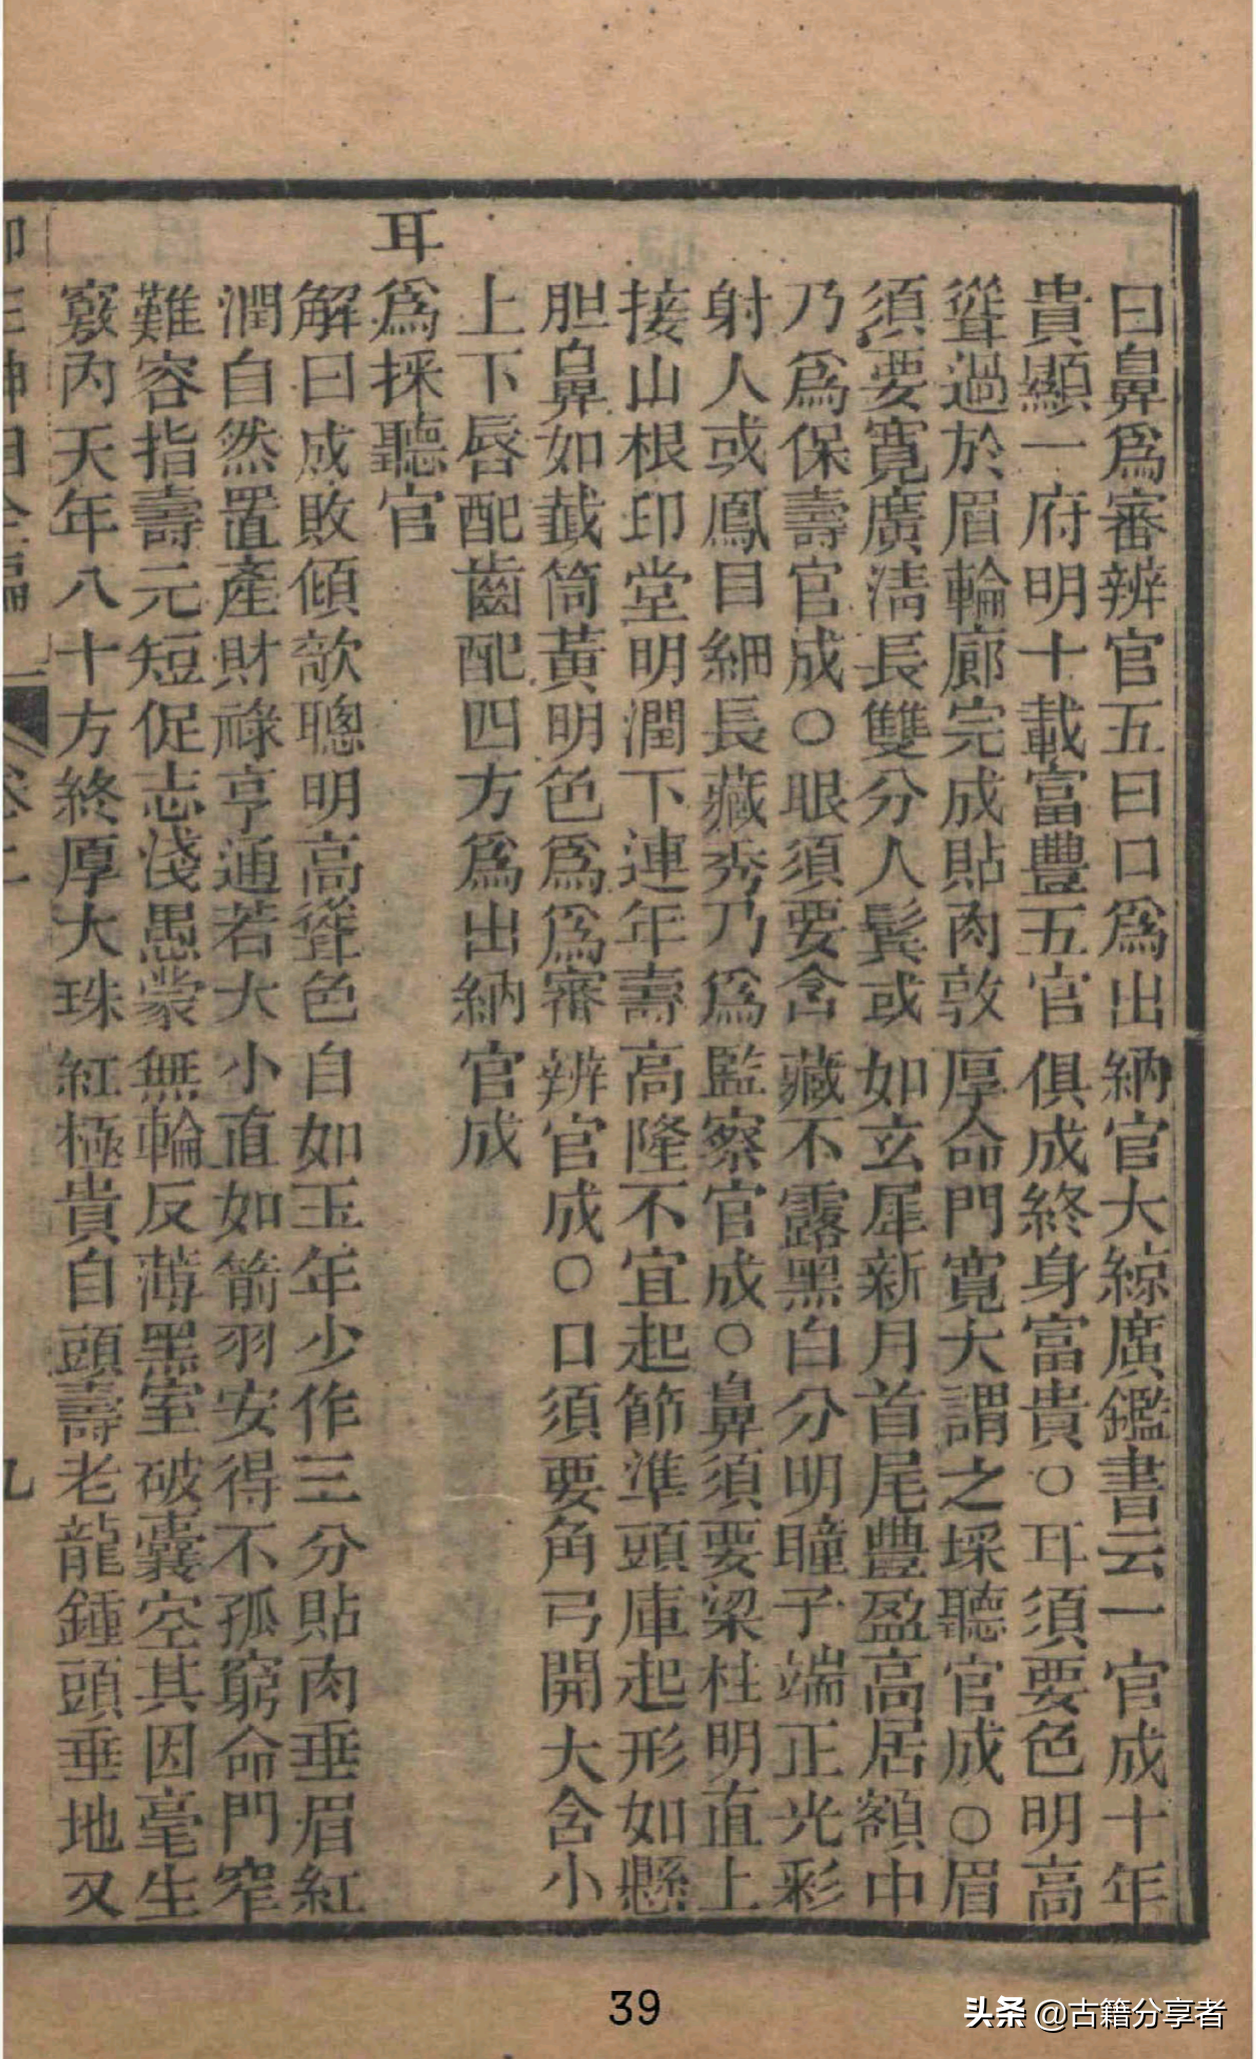 曰鼻爲審辨官五曰口爲出納官大綜廣鑑書云一官成十年
貴顯一府明十載富豐五官俱成終身富貴○耳須要色明高
聳過於眉輪廓完成貼肉敦厚命門寬大謂之採聽官成○眉
須要寬廣淸長雙分人鬂或如玄犀新月首尾豐盈高居額中
乃爲保壽官成○眼須要含藏不露黑白分明瞳子端正光彩
射人或鳳目細長藏秀乃爲監察官成○鼻須要梁柱明直上
接山根印堂明潤下連年壽高隆不宜起節準頭庫起形如懸
胆鼻如截筒黃明色爲爲審辨官成○口須要角弓開大含小
上下唇配齒配四方爲出納官成
耳爲採聽官
解曰成敗傾欹聰明高聳色自如玉年少作三分貼肉垂眉紅
潤自然置產財祿亨通若大小直如箭羽安得不孤窮命門窄
難容指壽元短促志淺愚蒙無輪反薄黑室破囊空其因毫生
竅內天年八十方終厚大珠紅極貴自頭壽老龍鍾頭垂地又
九
39
头条 @古籍分享者